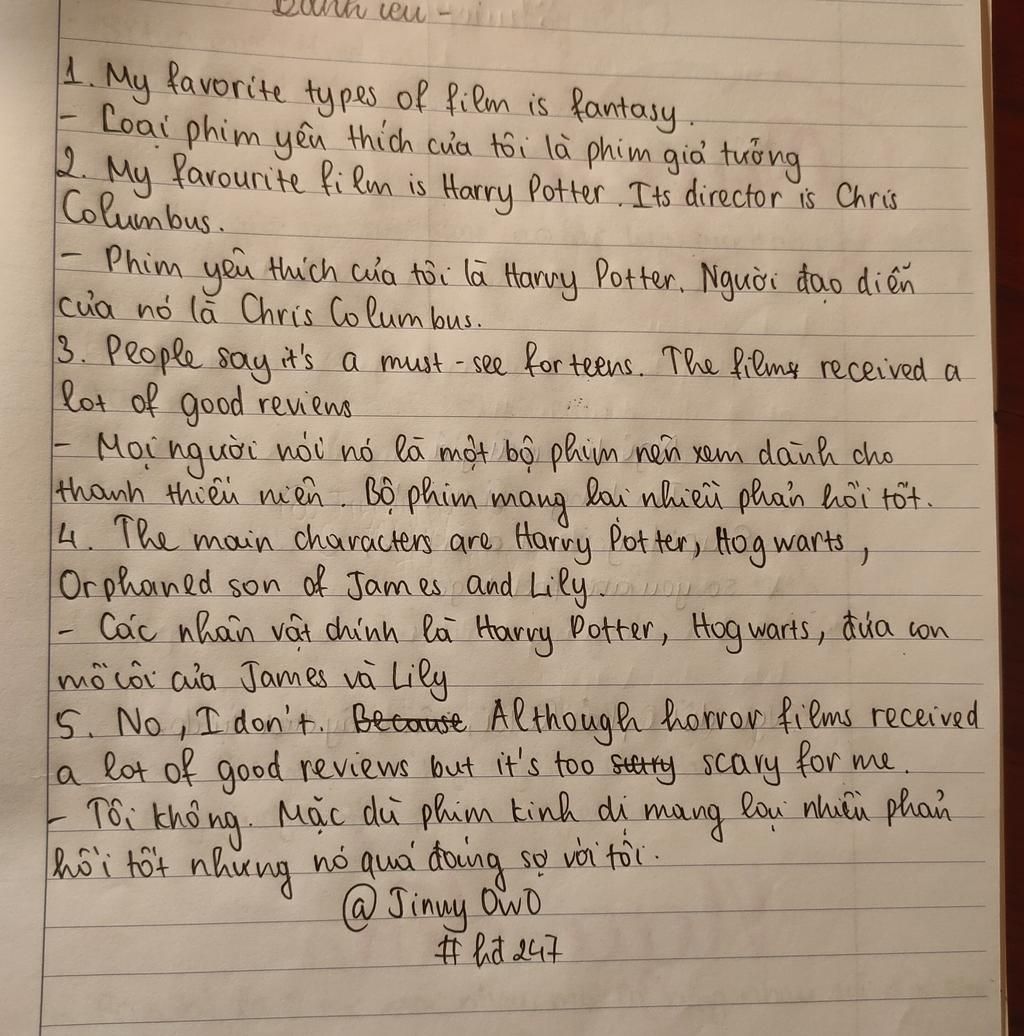 1. My favorite types of film is fantasy.
- Loại phim yêu thích của tôi là phim giả tưởng
2. My favourite film is Harry Potter. Its director is Chris
Columbus.
- Phim yêu thích của tôi là Harry Potter. Người đạo diễn
của nó là Chris Columbus.
3. People say it's a must-see for teens. The films received a
lot of good reviens
- Mọi người nói nó là một bộ phim nên xem dành cho
thanh thiếu niên. Bộ phim mang lại nhiều phản hồi tốt.
4. The main characters are Harry Potter, Hogwarts,
Orphaned son of James and Lily.
- Các nhân vật chính là Harry Potter, Hogwarts, đứa con
mồ côi của James và Lily
5. No, I don't. Because Although horror films received
a lot of good reviews but it's too scary for me.
- Tôi không. Mặc dù phim kinh dị mang lại nhiều phản
hồi tốt nhưng nó quá đáng sợ với tôi.
@ Jinny OwO
# hđ 247